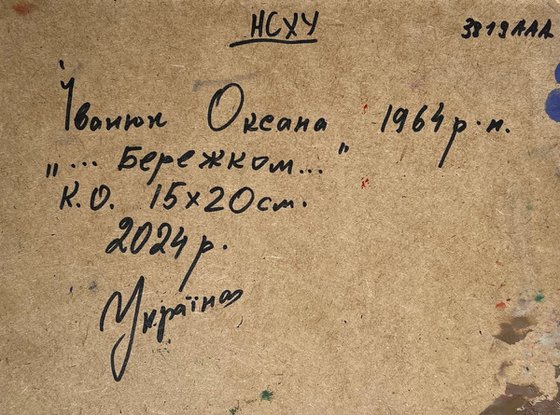 НСХУ
3819AAA
Іванюк Оксана 1964р.н.
"... Бережком..."
К.О. 15х20см.
2024р.
Україна